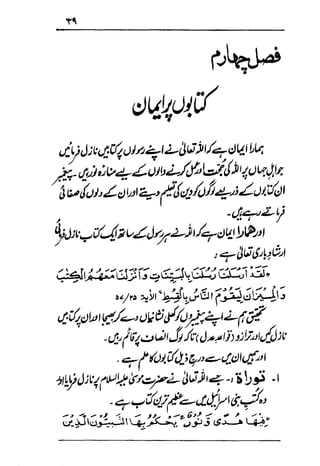 ۳۹
فصل چہارم
کتابوں پر ایمان
ہمارا ایمان ہے کہ اللہ تعالیٰ نے اپنے رسولوں پر کتابیں نازل فرمائیں
جو اہل جہاں پر اللہ کی حجت اور عمل کرنے والوں کے لیے منارۂ نور ہیں پیغمبر
ان کتابوں کے ذریعے لوگوں کو دین کی تعلیم دیتے اور ان کے دلوں کی صفائی
فرماتے رہے ہیں۔
اور ہمارا ایمان ہے کہ اللہ نے ہر رسول کے ساتھ ایک کتاب نازل فرمائی
ارشاد باری تعالیٰ ہے :
لَقَدْ اَرْسَلْنَا رُسُلَنَا بِالْبَيِّنَاتِ وَاَنْزَلْنَا مَعَهُمُ الْكِتٰبَ
وَالْمِيْزَانَ لِيَقُوْمَ النَّاسُ بِالْقِسْطِ الآية ۵۷/۲۵
تحقیق ہم نے اپنے پیغمبروں کو کھلی نشانیاں دے کر بھیجا اور ان پر کتابیں
نازل کیں اور ترازو (قواعد عدل) تاکہ لوگ انصاف پر قائم رہیں۔
اور ہمیں ان میں سے درج ذیل کتابوں کا علم ہے :
۱- توراۃ :- جسے اللہ تعالیٰ نے حضرت موسیٰ علیہ السلام پر نازل فرمایا اور
وہ کتب بنی اسرائیل میں سے عظیم ترین کتاب ہے۔
فِيْهَا هُدًى وَّنُوْرٌ يَحْكُمُ بِهَا النَّبِيُّوْنَ الَّذِيْنَ